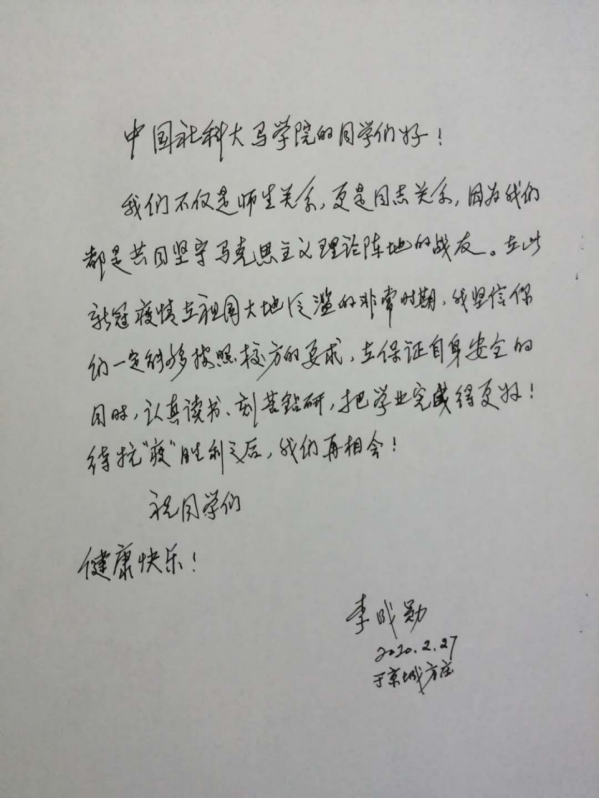 中国社科大马学院的同学们好！
我们不仅是师生关系，更是同志关系，因为我们
都是共同坚守马克思主义理论阵地的战友。在此
新冠疫情在祖国大地泛滥的非常时期，我坚信你
们一定能够按照校方的要求，在保证自身安全的
同时，认真读书、刻苦钻研，把学业完成得更好！
待抗“疫”胜利之后，我们再相会！
祝同学们
健康快乐！
李成勋
2020.2.27
于京城方庄